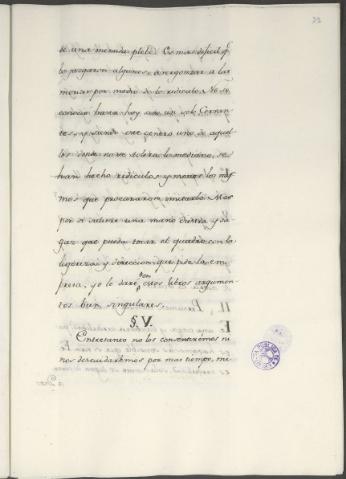 32
de una menuda plebe. Es mas dificil q.
lo juzgaron algunos, avergonzar a las
por medio de lo ridiculo. No se
conocen hasta hoy más que un solo Cervan-
tes, y siendo este genero uno de aquel-
los donde no se tolera lo mediano, se
han hecho ridiculos y menos los mis-
mos que procuraron imitarlo. Mas
por si hubiere una mano diestra y sa-
gaz que pueda tocar el quadro con la
ligereza y direccion que pide la em-
presa, yo le daré con estos libros argumen-
tos bien singulares.
§. V.
Entretanto no los consentiremos ni
nos descuidaremos por mas tiempo, me-